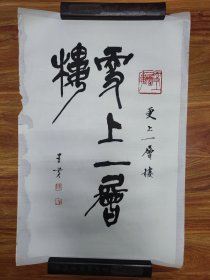 更上一層樓
更上一層
樓